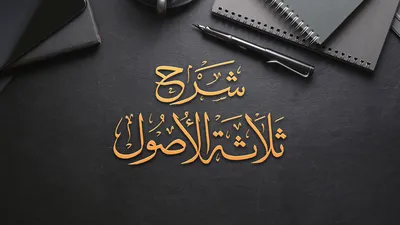 شَرْح
ثَلَاثَةِ الأُصُول